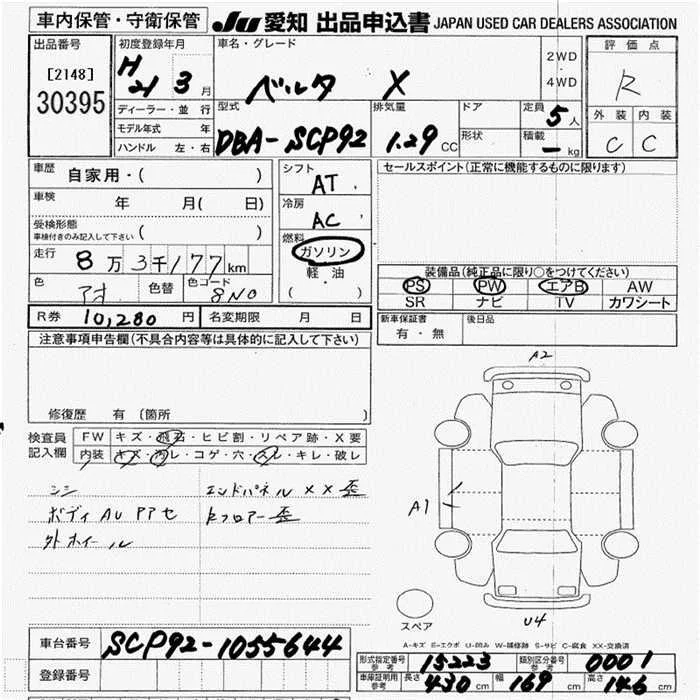 車内保管・守衛保管 JU 愛知 出品申込書 JAPAN USED CAR DEALERS ASSOCIATION
出品番号 初度登録年月 車名・グレード 2WD ・ 4WD 評価点
[2148] H21 3月 ベルタ X R
30395 ディーラー・並行 型式 排気量 ドア 定員 5人 外装 内装
モデル年式 年 DBA-SCP92 1.29CC 形状 積載 -kg C C
ハンドル 左・右
車歴 自家用・( ) シフト AT セールスポイント(正常に機能するものに限ります)
車検 年 月( 日) 冷房 AC
受検形態 ( )
車検付きのみ記入して下さい
燃料 ガソリン
走行 8万3千177km 軽・油 装備品(純正品に限り○をつけてください)
色 色替 色コード 8N0 ・( ) PS PW エアB AW
SR ナビ TV カワシート
R券 10,280円 名変期限 月 日 新車保証書 有・無 後日品
注意事項申告欄(不具合内容等は具体的に記入して下さい)
A2
修復歴 有 〔箇所 〕
検査員 FW キズ・飛石・ヒビ割・リペア跡・X要
記入欄 内装 キズ・汚レ・コゲ・穴・スレ・キレ・破レ
シシ エンドパネルXX歪
ボディAUアアセ Rフロアー歪
外ホイール
A1
スペア U4
A-キズ E-エクボ U-凹み W-補修跡 S-サビ C-腐食 XX-交換済
車台番号 SCP92-1055644
登録番号
形式指定番号 参考 15223 類別区分番号 参考 0001
車庫証明用 参考 長さ 430cm 幅 169cm 高さ 146cm